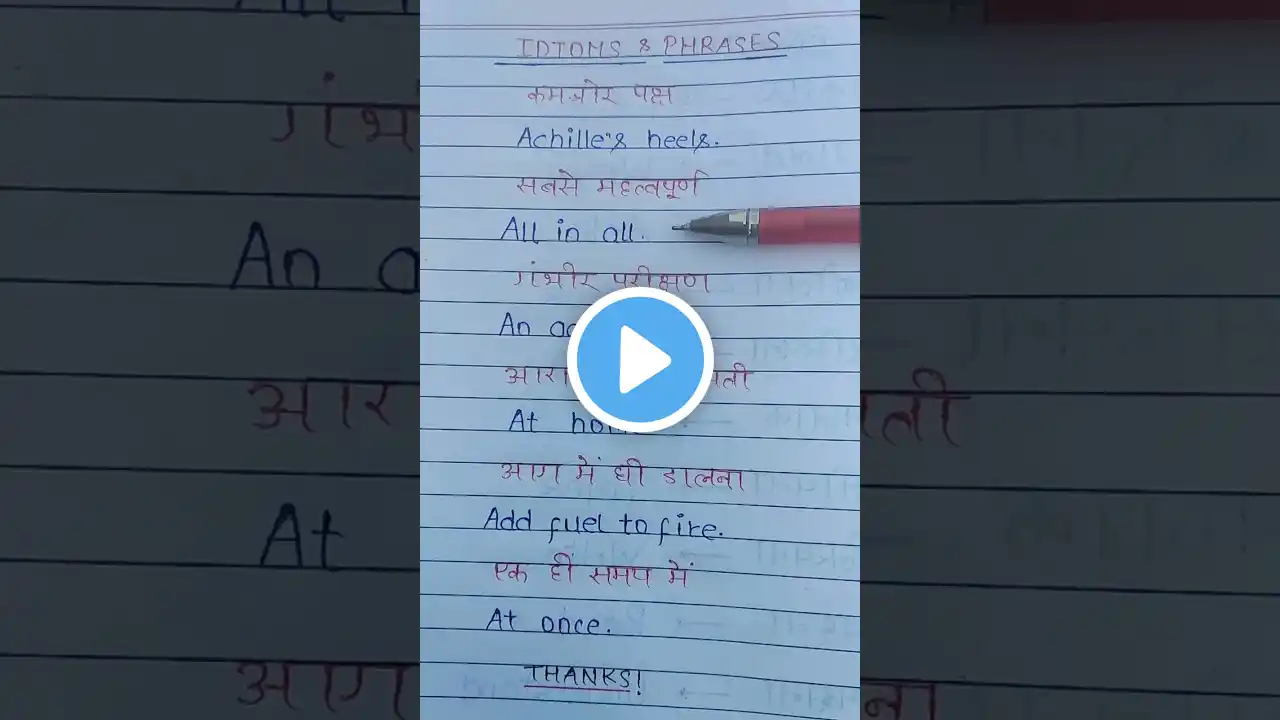 IDIOMS & PHRASES
कमजोर पक्ष
Achille's heels.
सबसे महत्वपूर्ण
All in all.
गंभीर परीक्षण
An
At
आग में घी डालना
Add fuel to fire.
एक ही समय में
At once.
THANKS!